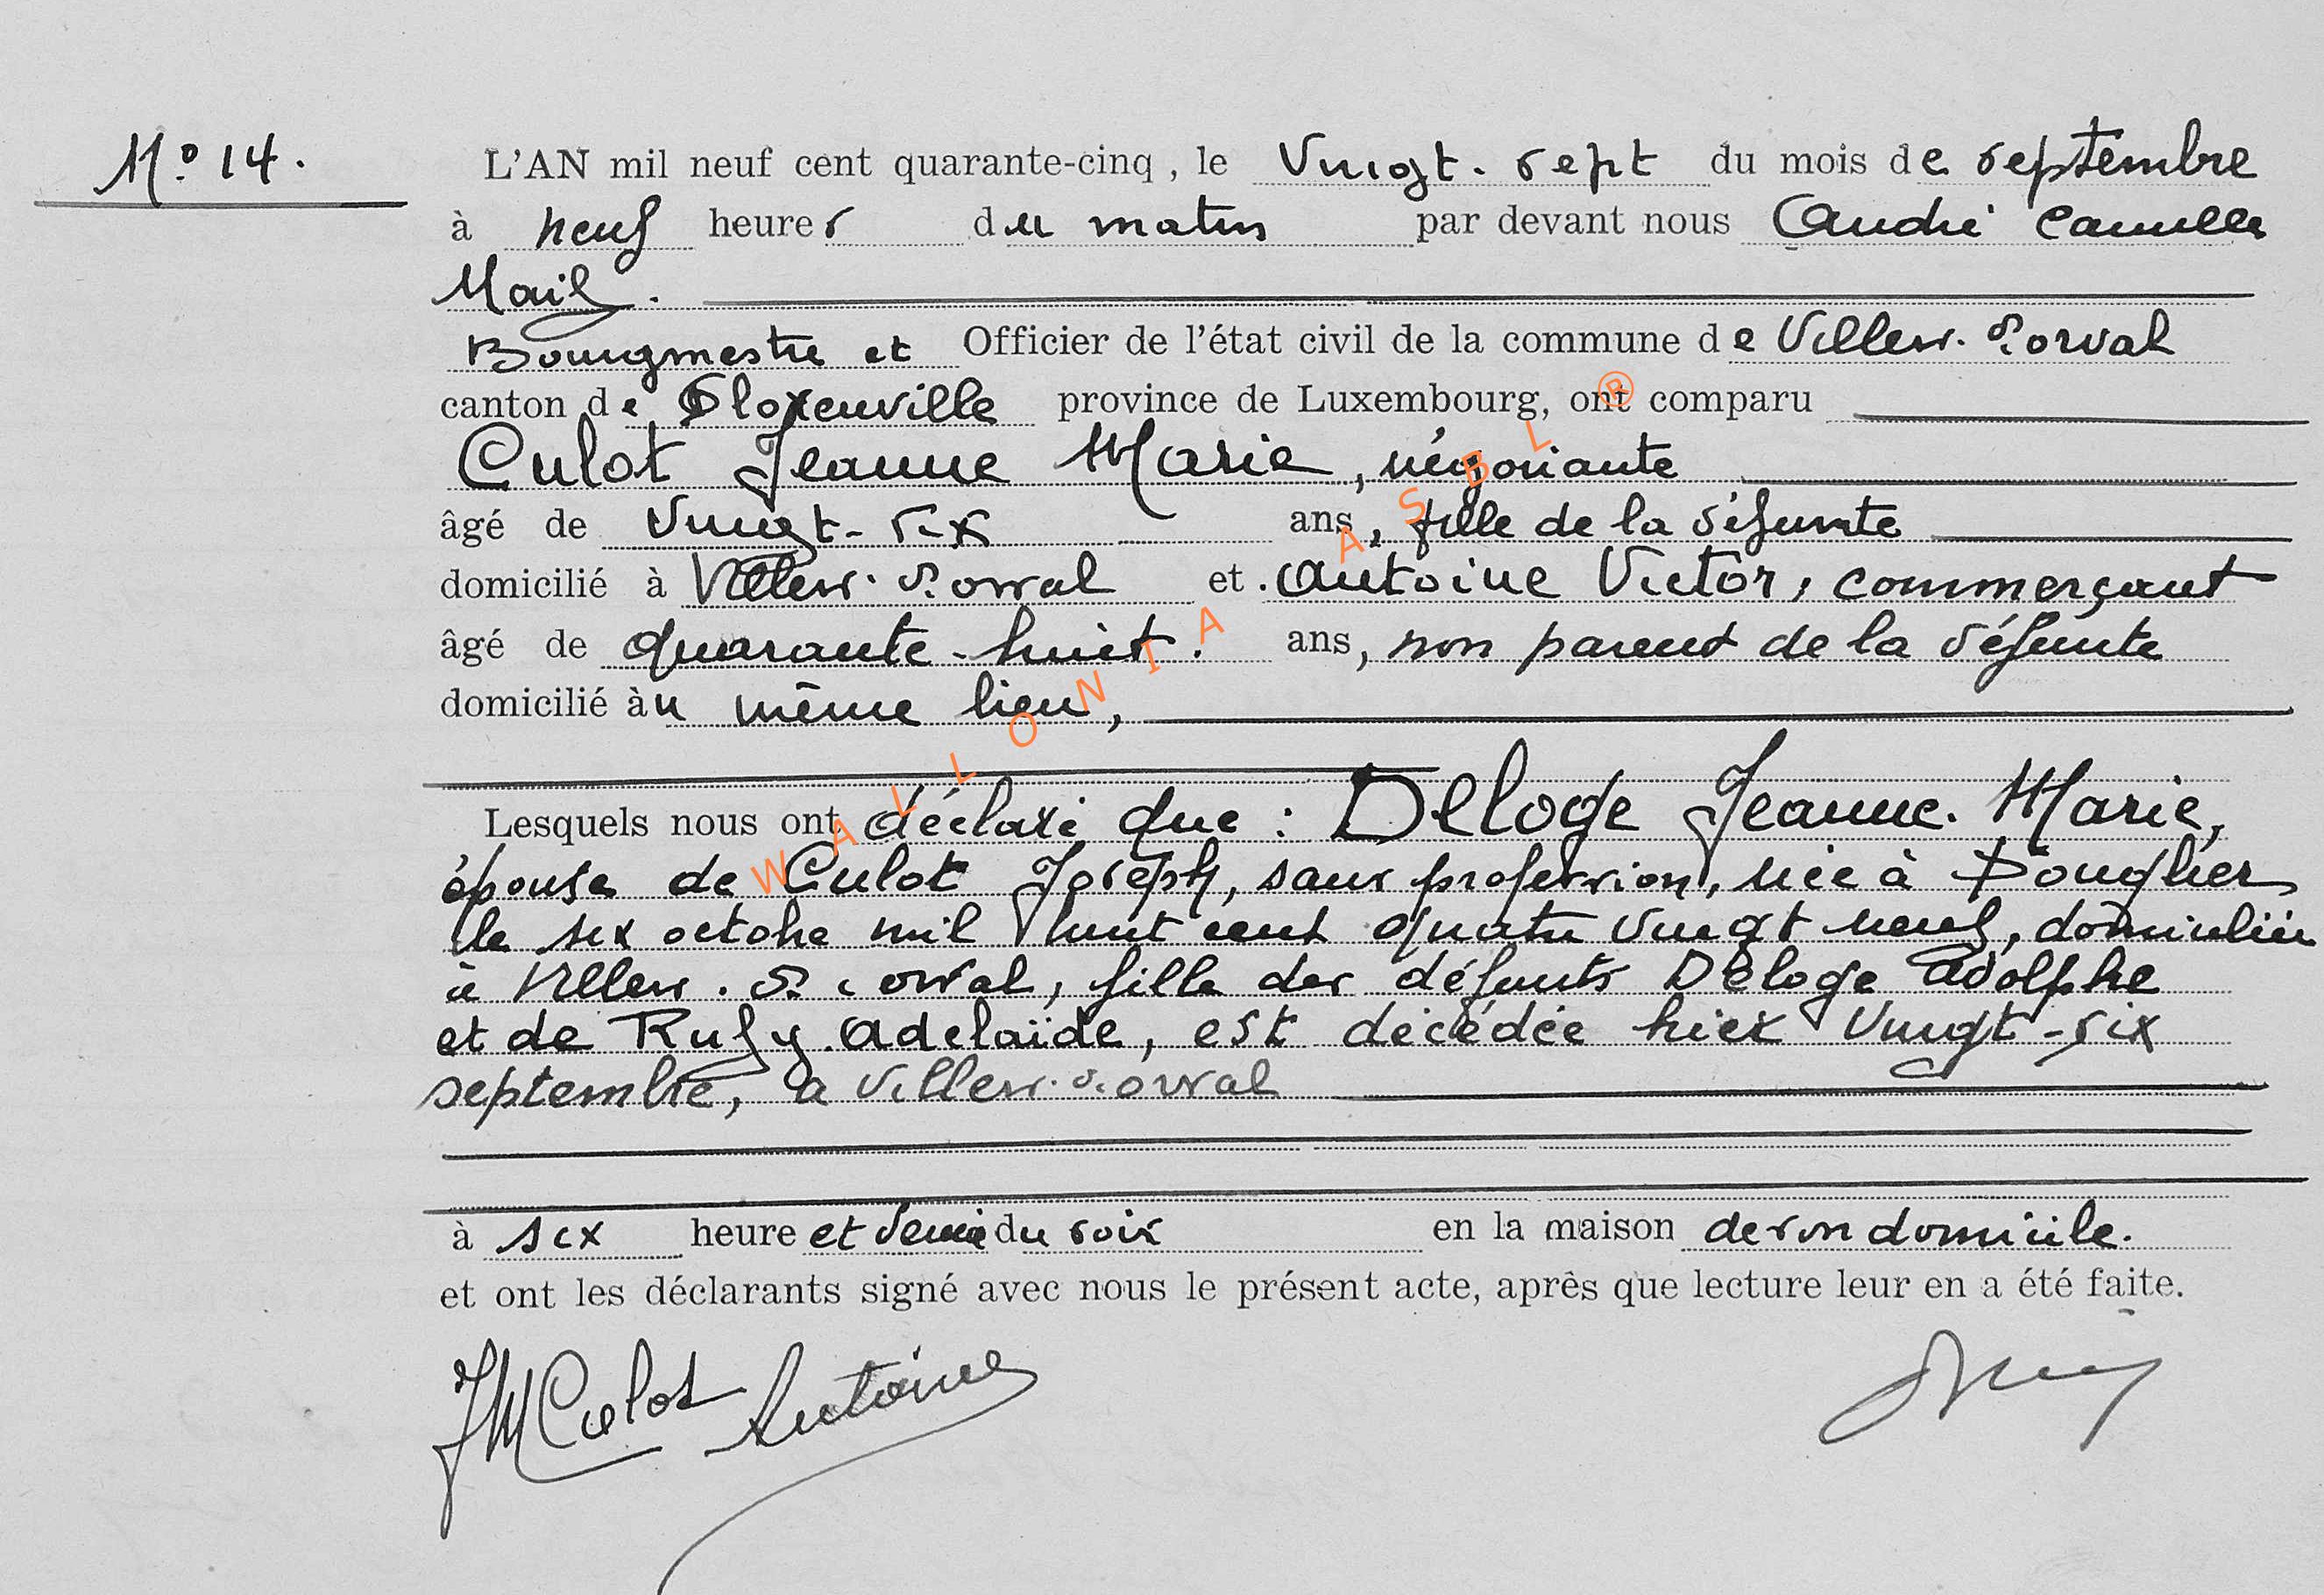 N° 14.
L'AN mil neuf cent quarante-cinq, le Vingt-sept du mois de septembre
à neuf heures du matin par devant nous André Camille
Mail.
Bourgmestre et Officier de l'état civil de la commune de Villers-d-orval
canton de Florenville province de Luxembourg, ont comparu
Culot Jeanne Marie, négociante
âgé de Vingt-six ans, fille de la défunte
domicilié à Villers-d-orval et Antoine Victor, commerçant
âgé de quarante-huit ans, non parent de la défunte
domicilié àu même lieu,
Lesquels nous ont déclaré que : Deloge Jeanne-Marie,
épouse de Culot Joseph, sans profession, née à
le six octobre mil huit cent quatre vingt neuf, domiciliée
à Villers-d-orval, fille des défunts Deloge Adolphe
et de Adelaïde, est décédée hier Vingt-six
septembre, a Villers-d-orval
à six heure et demie du soir en la maison de son domicile.
et ont les déclarants signé avec nous le présent acte, après que lecture leur en a été faite.
JMCulot Antoine
WALLONIA ASBL®